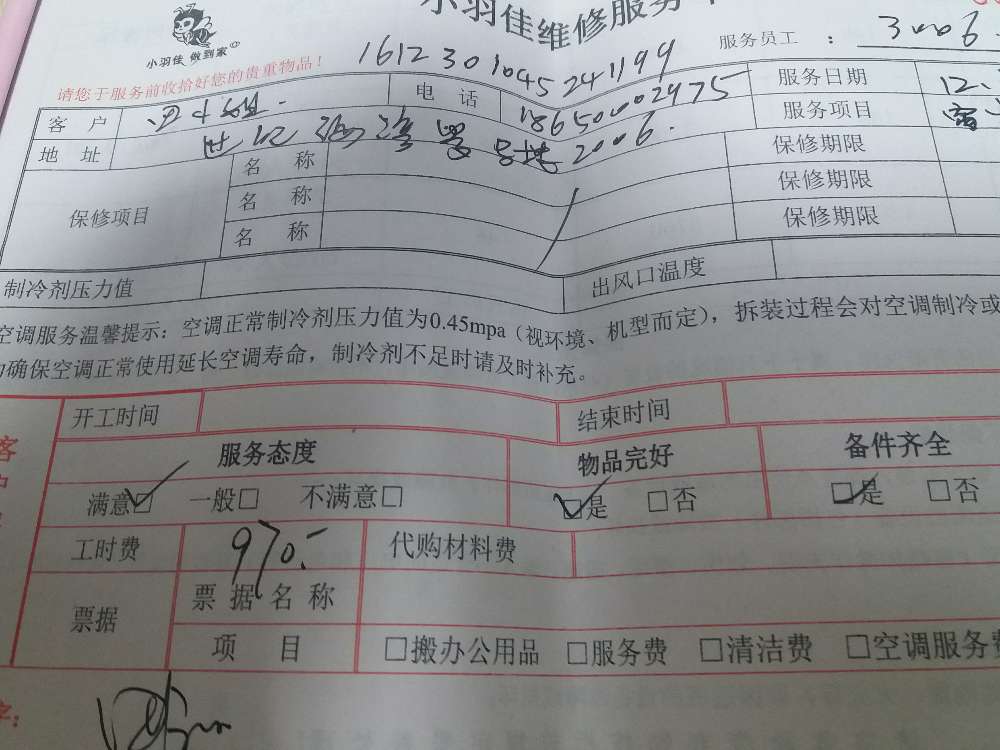 小羽佳维修服务
小羽佳 做到家
服务员工 : 3006.
请您于服务前收拾好您的贵重物品！
161230104524 1199
客 户 电 话 18650002975 服务日期 12.
地 址 2006. 服务项目
保修项目 名 称 保修期限
名 称 保修期限
名 称 保修期限
制冷剂压力值 出风口温度
空调服务温馨提示：空调正常制冷剂压力值为0.45mpa（视环境、机型而定），拆装过程会对空调制冷或
确保空调正常使用延长空调寿命，制冷剂不足时请及时补充。
客
开工时间 结束时间
服务态度 物品完好 备件齐全
满意☑ 一般□ 不满意□ ☑是 □否 ☑是 □否
工时费 970.- 代购材料费
票据 票 据 名 称
项 目 □搬办公用品 □服务费 □清洁费 □空调服务费
字：